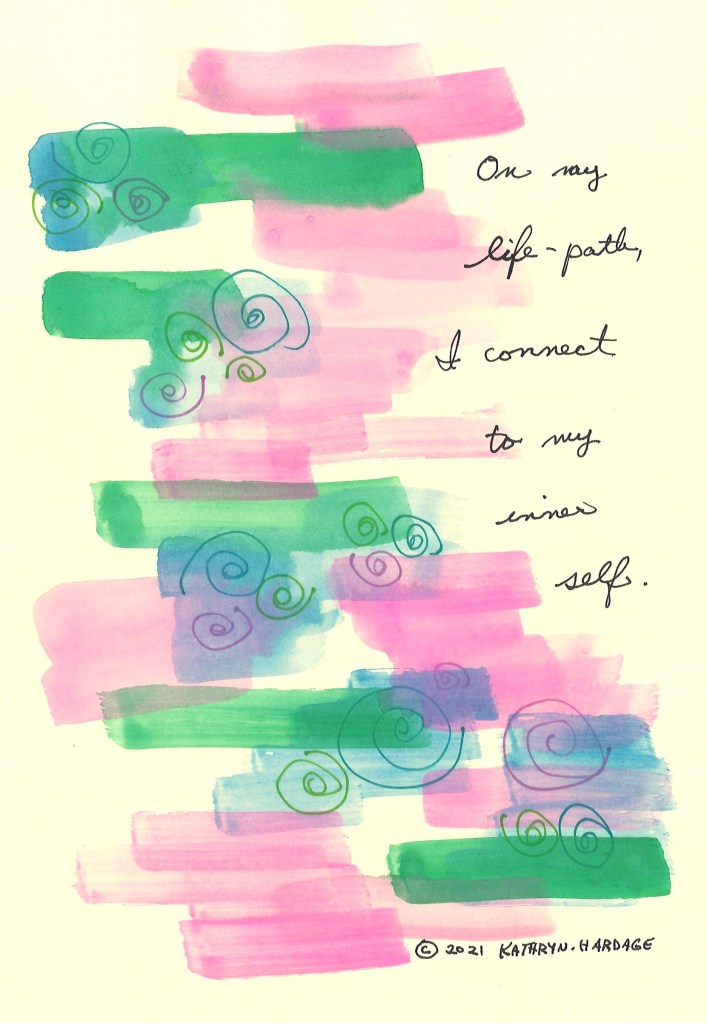 On my
life-path,
I connect
to my
inner
self.
© 2021 KATHRYN·HARDAGE